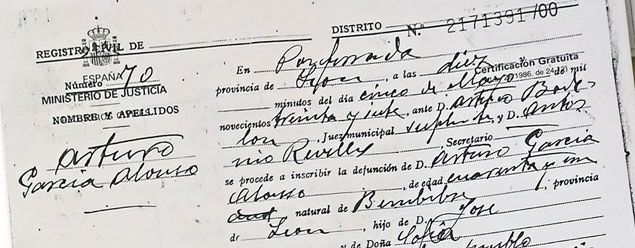 DISTRITO
Nº 2171391/00
REGISTRO CIVIL DE
ESPAÑA
Número 70
MINISTERIO DE JUSTICIA
NOMBRE Y APELLIDOS
Arturo
García Alonso
En Ponferrada
provincia de León, a las diez
Certificación Gratuita
1986, de 24
minutos del día cinco de Mayo de mil
novecientos treinta y siete, ante D. Arturo
Juez municipal suplente, y D. Anto
nio Revilla Secretario
se procede a inscribir la defunción de D. Arturo García
Alonso, de edad cuarenta y un
natural de Bembibre, provincia
de León, hijo de D. José
y de Doña Sofía